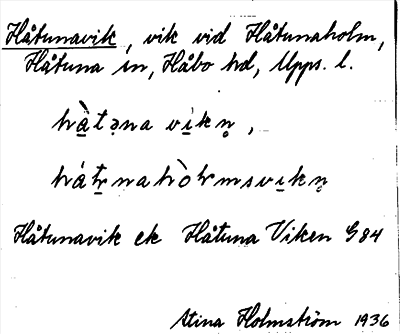 Håtunavik, vik vid Håtunaholm,
Håtuna sn, Håbo hd, Upps. l.
hà̱təna vi̱kn̥,
Håtunavik ek Håtuna Viken G84
Stina Holmström 1936